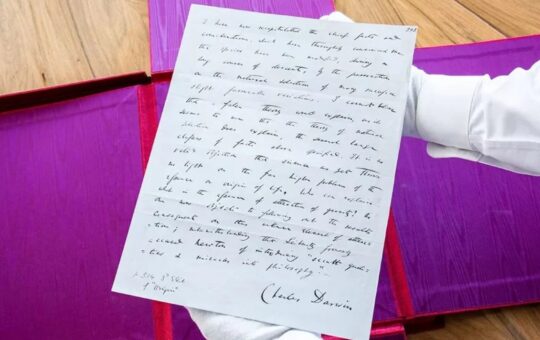 I have now recapitulated the chief facts and
considerations which have thoroughly convinced me
that species have been modified, during a
long course of descent, by the preservation
or the natural selection of many successive
slight favourable variations. I cannot believe
that a false theory would explain, as it
seems to me that the theory of natural
selection does explain, the several large
classes of facts above specified. It is no
valid objection that science as yet throws
no light on the far higher problem of the
essence or origin of life. Who can explain
what is the essence of attraction of gravity? No
one now objects to following out the results
consequent on this unknown element of attrac
-tion; notwithstanding that Leibnitz formerly
accused Newton of introducing "occult quali
-ties & miracles into philosophy".
Charles Darwin
3d Edit
of "Origin"